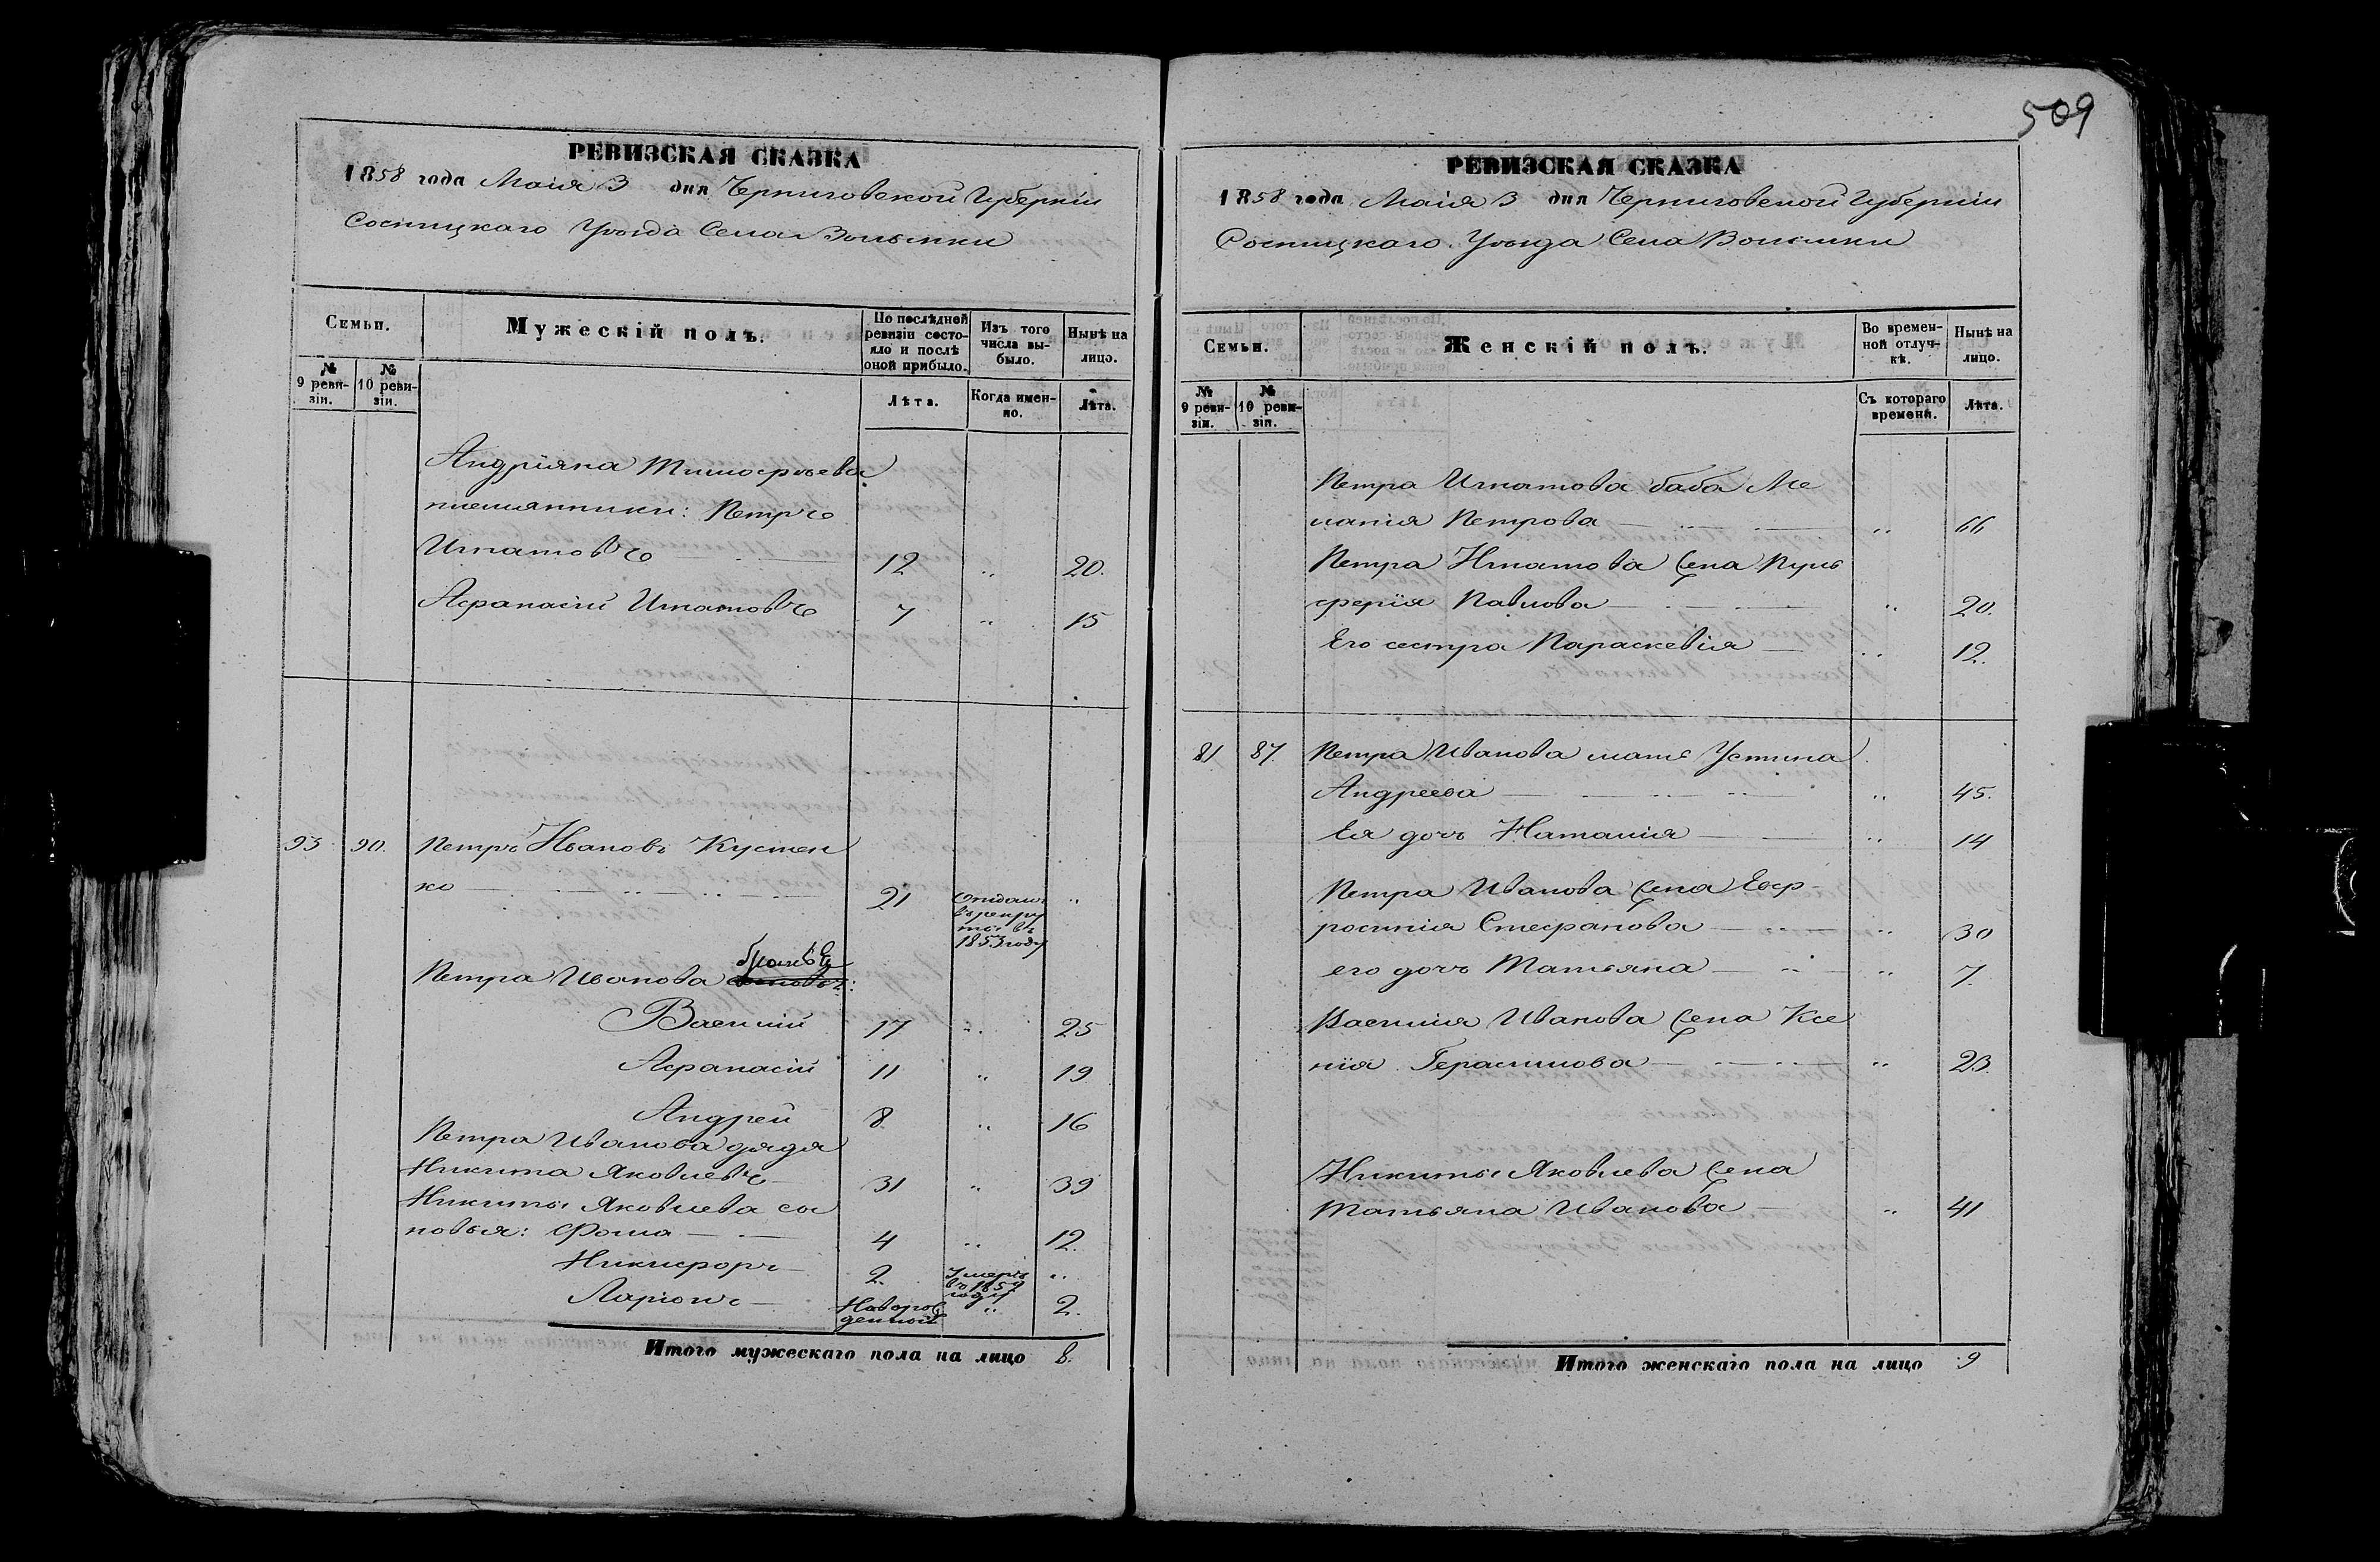 509
РЕВИЗСКАЯ СКАЗКА
1858 года Маія 3 дня Черниговской Губерніи
Сосницкаго Уѣзда Села Волынки
Семьи.
№ 9 ревизіи.
№ 10 ревизіи.
Мужескій полъ.
По послѣдней ревизіи состояло и послѣ оной прибыло.
Лѣта.
Изъ того числа выбыло.
Когда именно.
Нынѣ на лицо.
Лѣта.
Андріяна Тимофѣева
племянники: Петръ
Игнатовъ 12 „ 20.
Афанасій Игнатовъ 7 „ 15
93 90. Петръ Ивановъ Кустен
ко 21 Отданъ въ рекруты въ 1853 году „
Петра Иванова братья
Василій 17 „ 25
Афанасій 11 „ 19
Андрей 8 „ 16
Петра Иванова дядя
Никита Яковлевъ 31 „ 39
Никиты Яковлева сы
новья: Фома 4 „ 12.
Никифоръ 2. Умеръ въ году „
Ларіонъ Новорожденной „ 2.
Итого мужескаго пола на лицо 8.
РЕВИЗСКАЯ СКАЗКА
1858 года Маія 3 дня Черниговской Губерніи
Сосницкаго Уѣзда Села Волынки
Семьи.
№ 9 ревизіи.
№ 10 ревизіи.
Женскій полъ.
Во временной отлучкѣ.
Съ котораго времени.
Нынѣ на лицо.
Лѣта.
Петра Игнатова баба Ме
ланія Петрова „ 66
Петра Игнатова жена Пуль
ферія Павлова „ 20.
Его сестра Параскевія „ 12.
81 87. Петра Иванова мать Устина
Андреева „ 45.
Ея дочь Наталія „ 14
Петра Иванова жена Евф-
росинія Стефанова „ 30
его дочь Татьяна „ 7.
Василія Иванова жена Ксе
нія Герасимова „ 23.
Никиты Яковлева жена
Татьяна Иванова „ 41
Итого женскаго пола на лицо 9